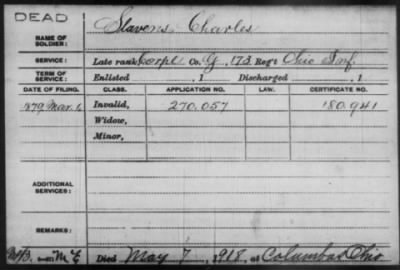 DEAD
NAME OF SOLDIER: Slavens Charles
SERVICE: Late rank Corpl Co. G, 173 Reg't Ohio Inf.
TERM OF SERVICE: Enlisted , 1 Discharged , 1
DATE OF FILING. CLASS. APPLICATION NO. LAW. CERTIFICATE NO.
1879 Mar. 6 Invalid, 270.057 180.941
Widow,
Minor,
ADDITIONAL SERVICES:
REMARKS:
Died May 7, 1918, at Columbus Ohio